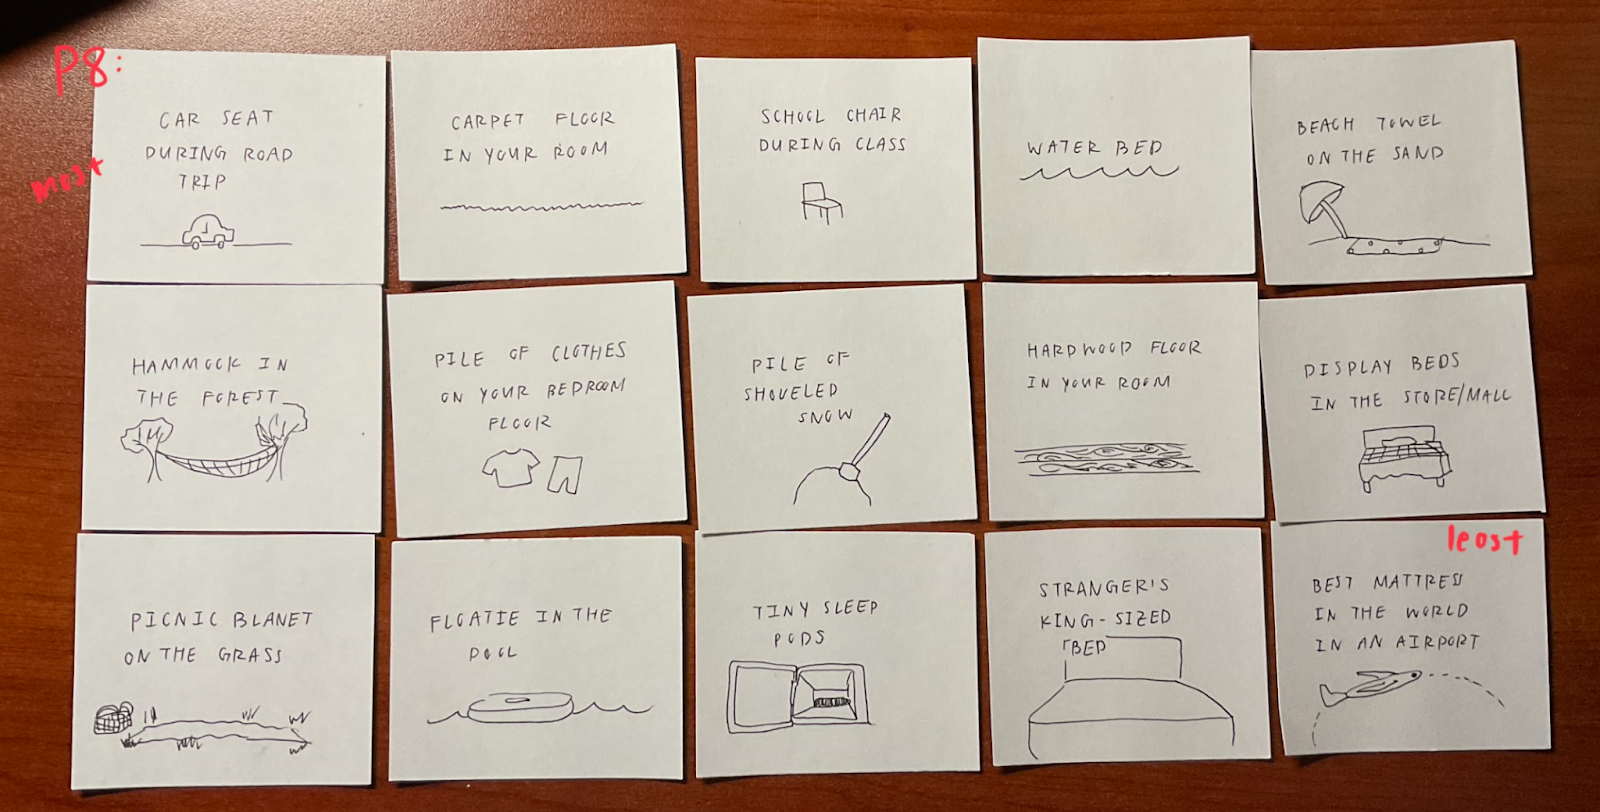 P8:
most
CAR SEAT
DURING ROAD
TRIP
CARPET FLOOR
IN YOUR ROOM
SCHOOL CHAIR
DURING CLASS
WATER BED
BEACH TOWEL
ON THE SAND
HAMMOCK IN
THE FOREST
PILE OF CLOTHES
ON YOUR BEDROOM
FLOOR
PILE OF
SHOVELED
SNOW
HARDWOOD FLOOR
IN YOUR ROOM
DISPLAY BEDS
IN THE STORE/MALL
PICNIC BLANET
ON THE GRASS
FLOATIE IN THE
POOL
TINY SLEEP
PODS
STRANGER'S
KING-SIZED
BED
least
BEST MATTRESS
IN THE WORLD
IN AN AIRPORT